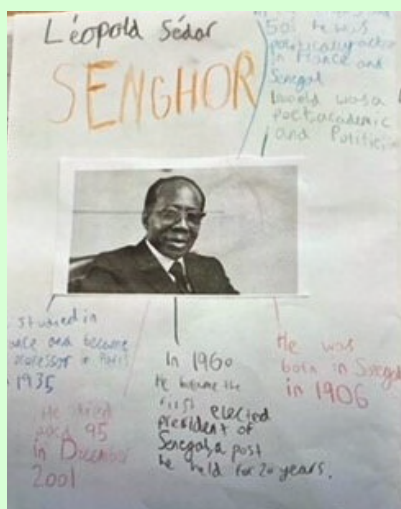 Léopold Sédar
SENGHOR
50s he was
politically active
in France and
Senegal
was a
poet, academic
and Politician
studied in
and became
professor in Paris
1935
He died
aged 95
in December
2001
In 1960
He became the
first elected
president of
Senegal, a post
he held for 20 years.
He was
born in Senegal
in 1906